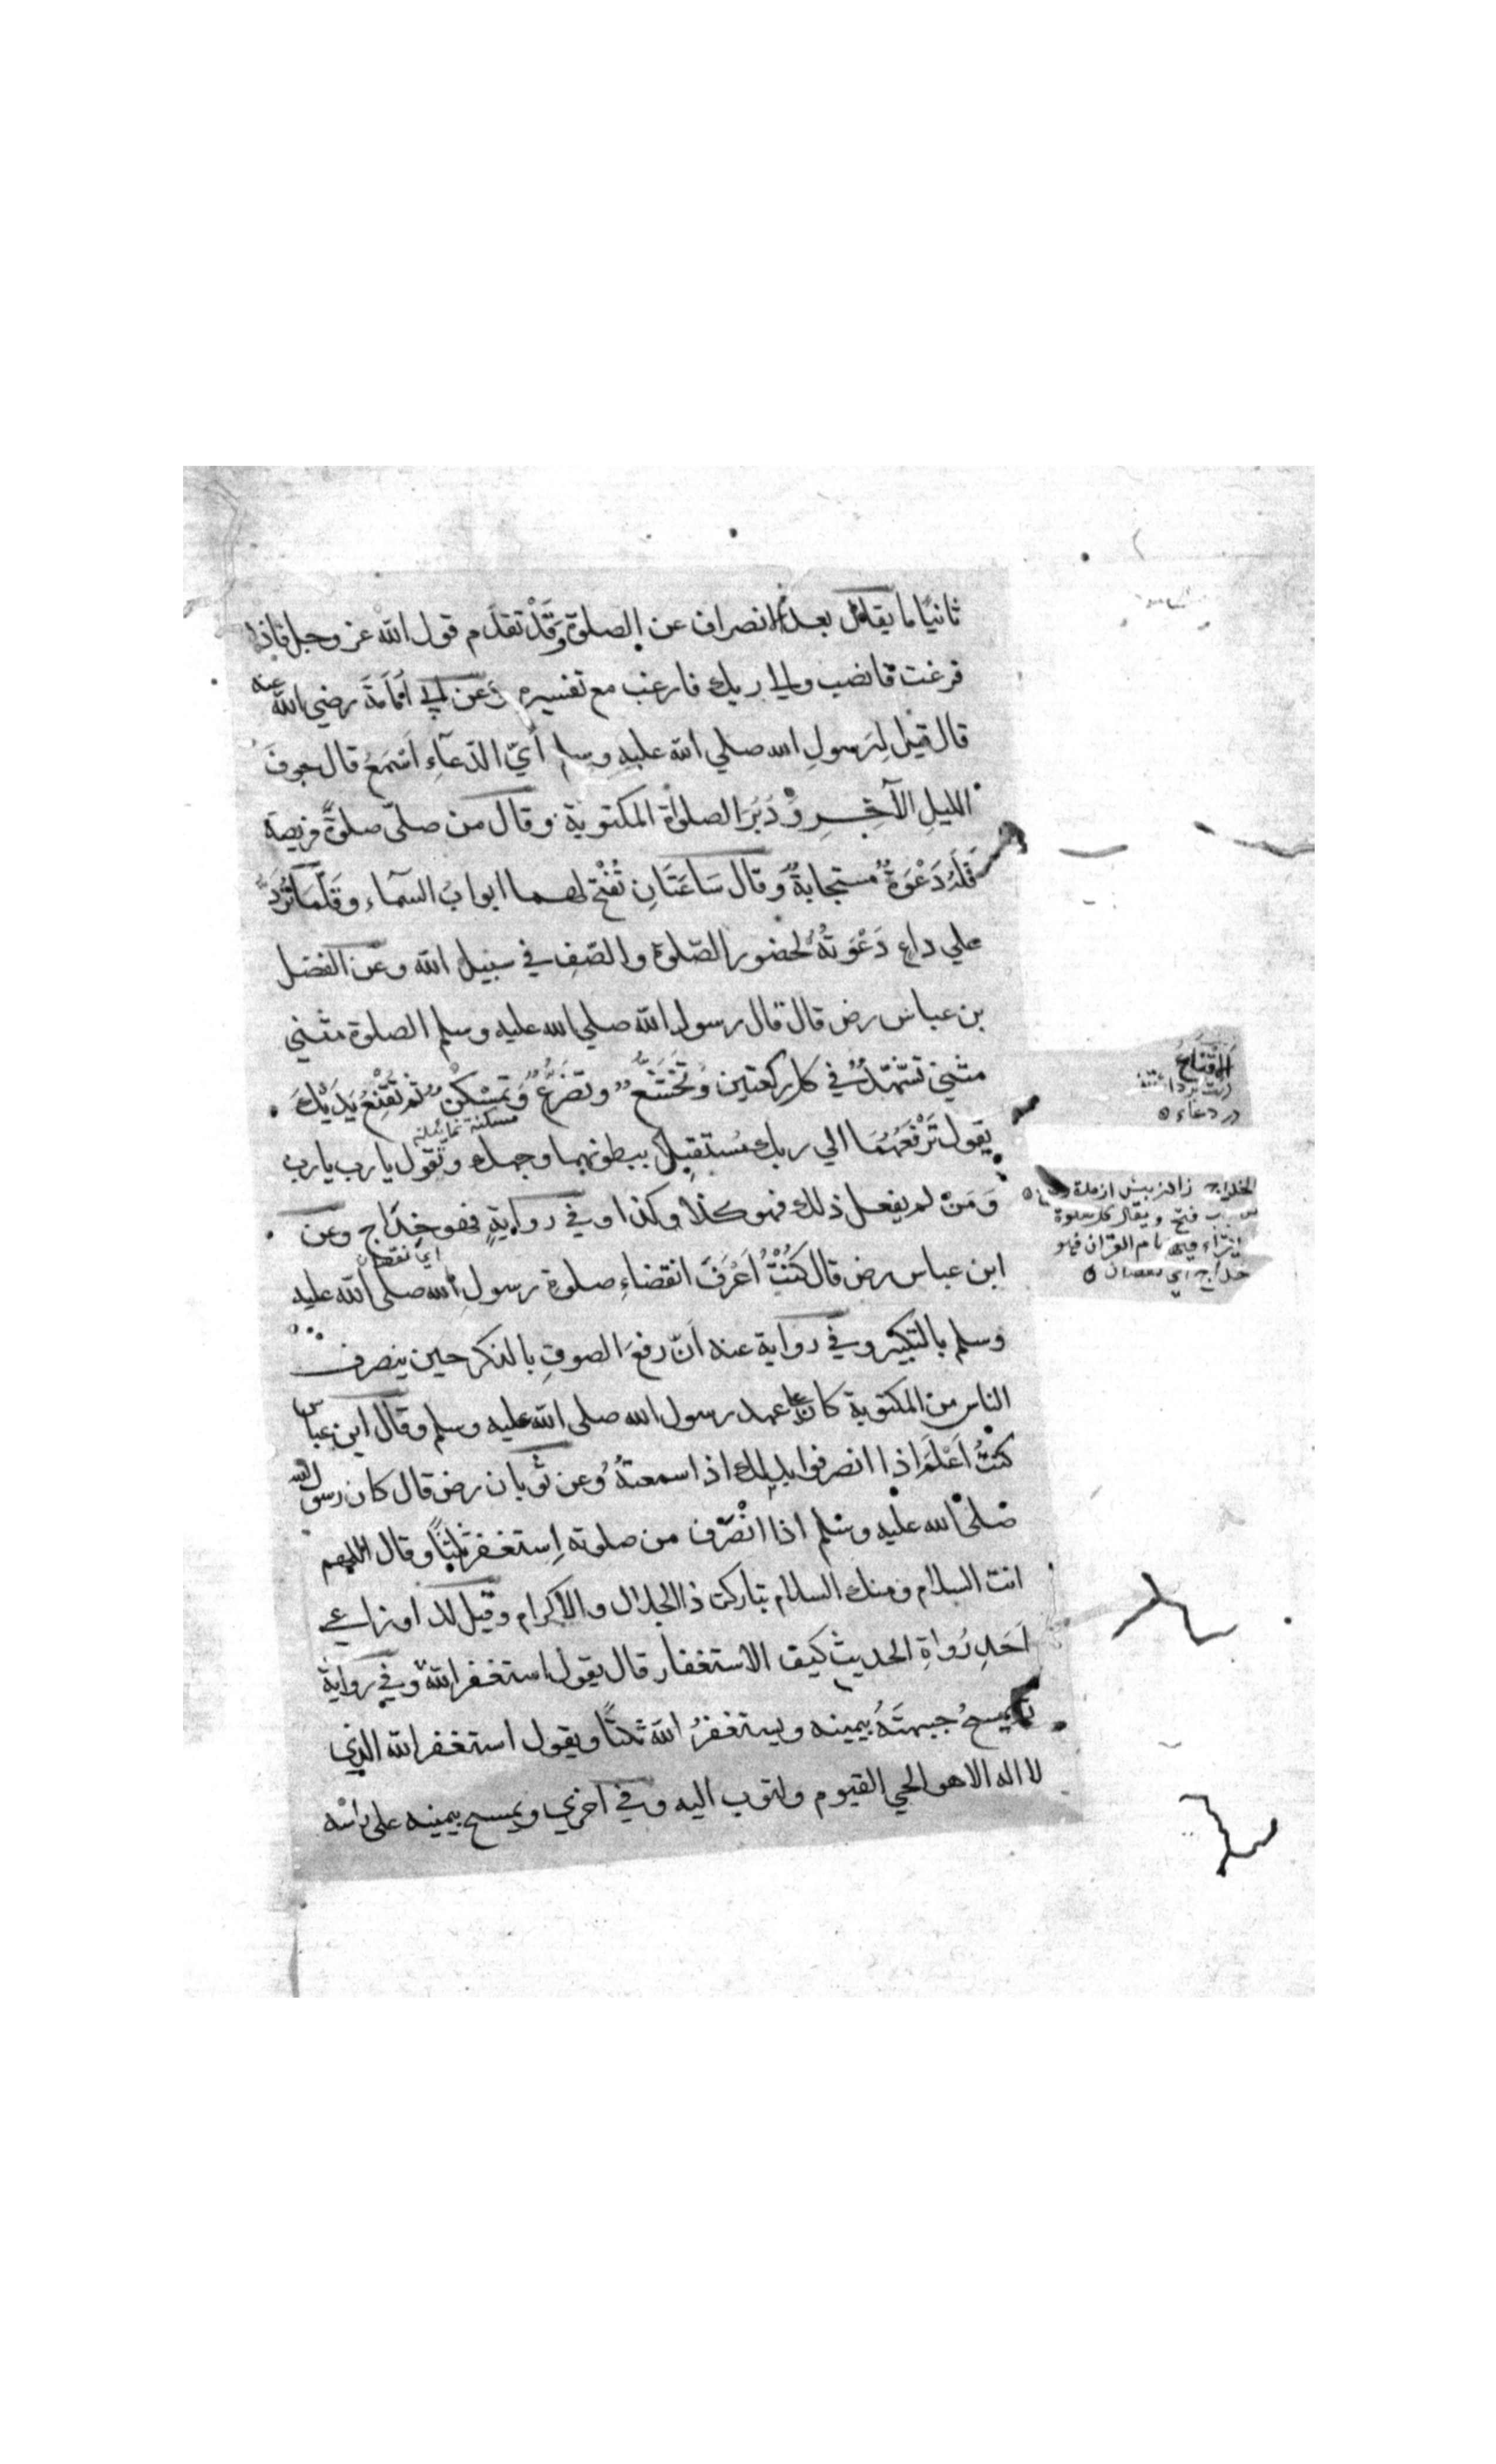 ثانيًا ما يقال بعد انصراف عن الصلوة وَقَدْ تقدم قول الله عز وجل فاذا
فرغت فانصب والي ربك فارغب مع تفسيره وَعن ابي اُمَامَةَ رضي الله عنه
قال قيل لِرَسولِ الله صلي الله عليه وسلم أيّ الدّعآءِ اَسْمَعُ قال جوفَ
الليلِ الآخِرِ وَدُبُرَ الصلواة المكتوبة وقال من صلّى صلوةً فريضة
فَلَهُ دَعْوَةٌ مستجابةٌ وَقال سَاعَتَانِ تُفْتَح لهما ابوابُ السمآء وَقَلَّمَا تُرَدُّ
علي داعٍ دَعْوَتُهُ لحضور الصّلوة والصّفِ في سبيل الله وعن الفضل
بن عباس رض قال قال رسول الله صلي الله عليه وسلم الصلوة مثني
مثني تشهّدٌ في كل ركعتين وَتَخَشُّعٌ وتضرُّعٌ وَتمسْكنٌ ثم تُقْنِعُ يَدَيْكَ
مسكنة نمايش
يقول تَرْفَعُهُمَا الي ربك مُستقبِلًا ببطونهما وجهك وتقول يارب يارب
وَمَنْ لم يفعل ذلك فهو كذا وكذا وفي روايةٍ فهو خِدَاج وعن
اي نقصان
ابن عباس رض قال كُنْتُ اَعْرِفُ انقضاءِ صلوةِ رسولِ الله صلى الله عليه
وسلم بالتكبير وفي رواية عنه اَنّ رفعَ الصوتِ بالذكر حين ينصرف
الناس من المكتوبة كان علي عهد رسول الله صلى الله عليه وسلم وقال ابن عباس
كنتُ اَعْلَمُ اذا انصرفوا بذلك اذا سمعتهُ وعن ثوبان رض قال كان رسول الله
صلى الله عليه وسلم اذا انْصَرَف من صلوته اِستغفر ثلثًا وقال اللهم
انت السلام ومنك السلام تباركت ذا الجلال والاكرام وقيل للاوزاعي
اَحَدِ رُواةِ الحديث كيف الاستغفار قال يقول استغفر الله وفي رواية
يمسحُ جبهتَهُ بيمينه ويستغفرُ الله ثلثًا ويقول استغفر الله الذي
لا اله الا هو الحي القيوم واتوب اليه وفي اخري ويمسح بيمينه على راسه
الاقناع
دست برداشتن
در دعاء
الخداج زادن پيش از مدة
ويقال كل صلوة
بام القران فهو
خداج اي نقصان